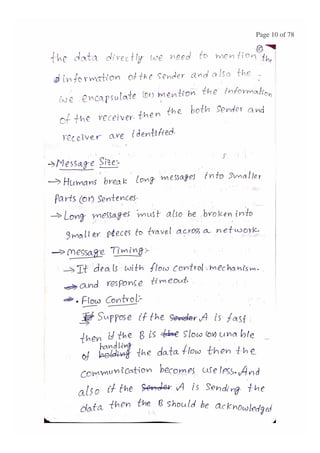 Page 10 of 78
the data directly we need to mention the
information of the sender and also the
we encapsulate (or) mention the information
of the receiver. then the both sender and
receiver are identified.
→Message Size:-
→Humans break long messages into smaller
Parts (or) sentences.
→Long messages must also be broken into
smaller pieces to travel across a network.
→message Timing:-
→It deals with flow control mechanism.
→and response timeout.
•Flow Control:-
Suppose if the Sender A is fast
then if the B is slow (or) unable
handling
of holding the data flow then the
communication becomes useless. And
also if the Sender A is sending the
data then the B should be acknowledged